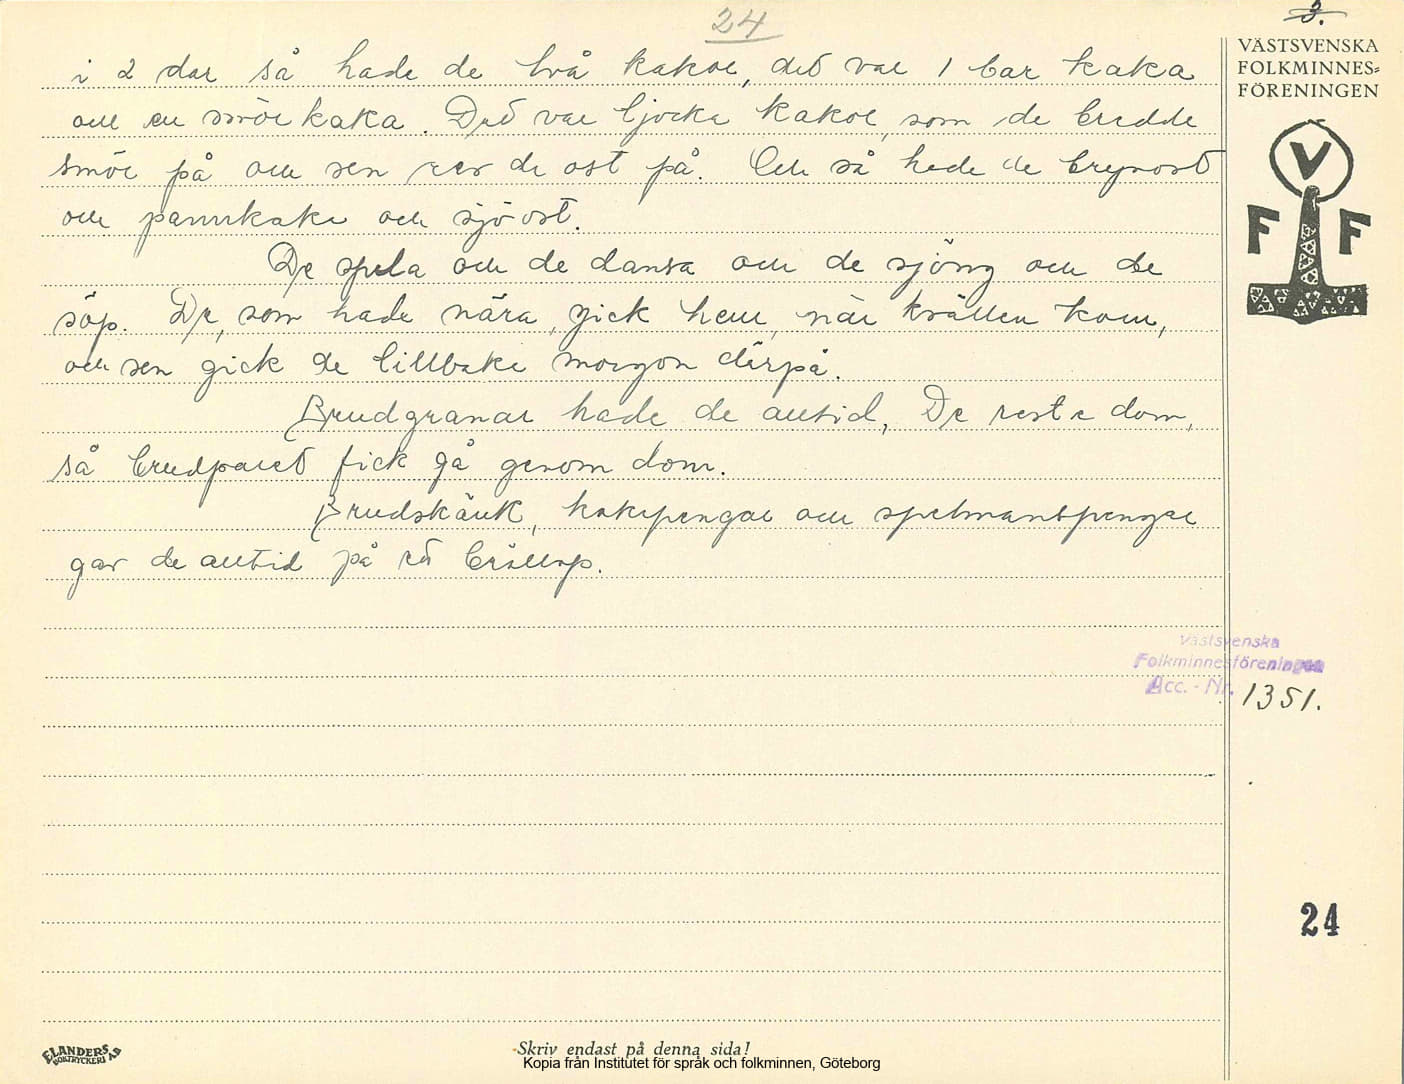 24
3.
VÄSTSVENSKA
FOLKMINNES=
FÖRENINGEN
V
F F
i 2 dar så hade de två kakor, det var 1 bar kaka
och en smörkaka. Det var tjocka kakor, som de bredde
smör på och sen rev de ost på. Och så hade de brynost
och pannkaka och sjöost.
De spela och de dansa och de sjöng och de
söp. De, som hade nära, gick hem, när kvällen kom,
och sen gick de tillbaka morgon därpå.
Brudgranar hade de alltid. De reste dom,
så brudparet fick gå genom dom.
Brudskänk, kakepengar och spelmanspengar
gav de alltid på ett bröllop.
Västsvenska
Folkminnesföreningen
Acc. - Nr. 1351.
24
ELANDERS
BOKTRYCKERI AB
Skriv endast på denna sida!
Kopia från Institutet för språk och folkminnen, Göteborg